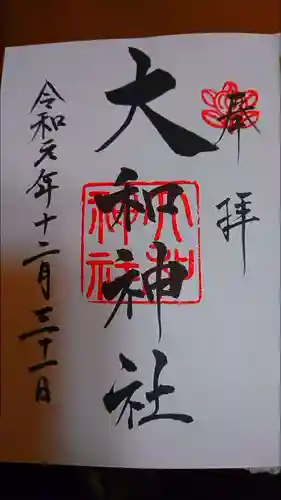 奉拝
大和神社
大和神社
令和元年十二月三十一日